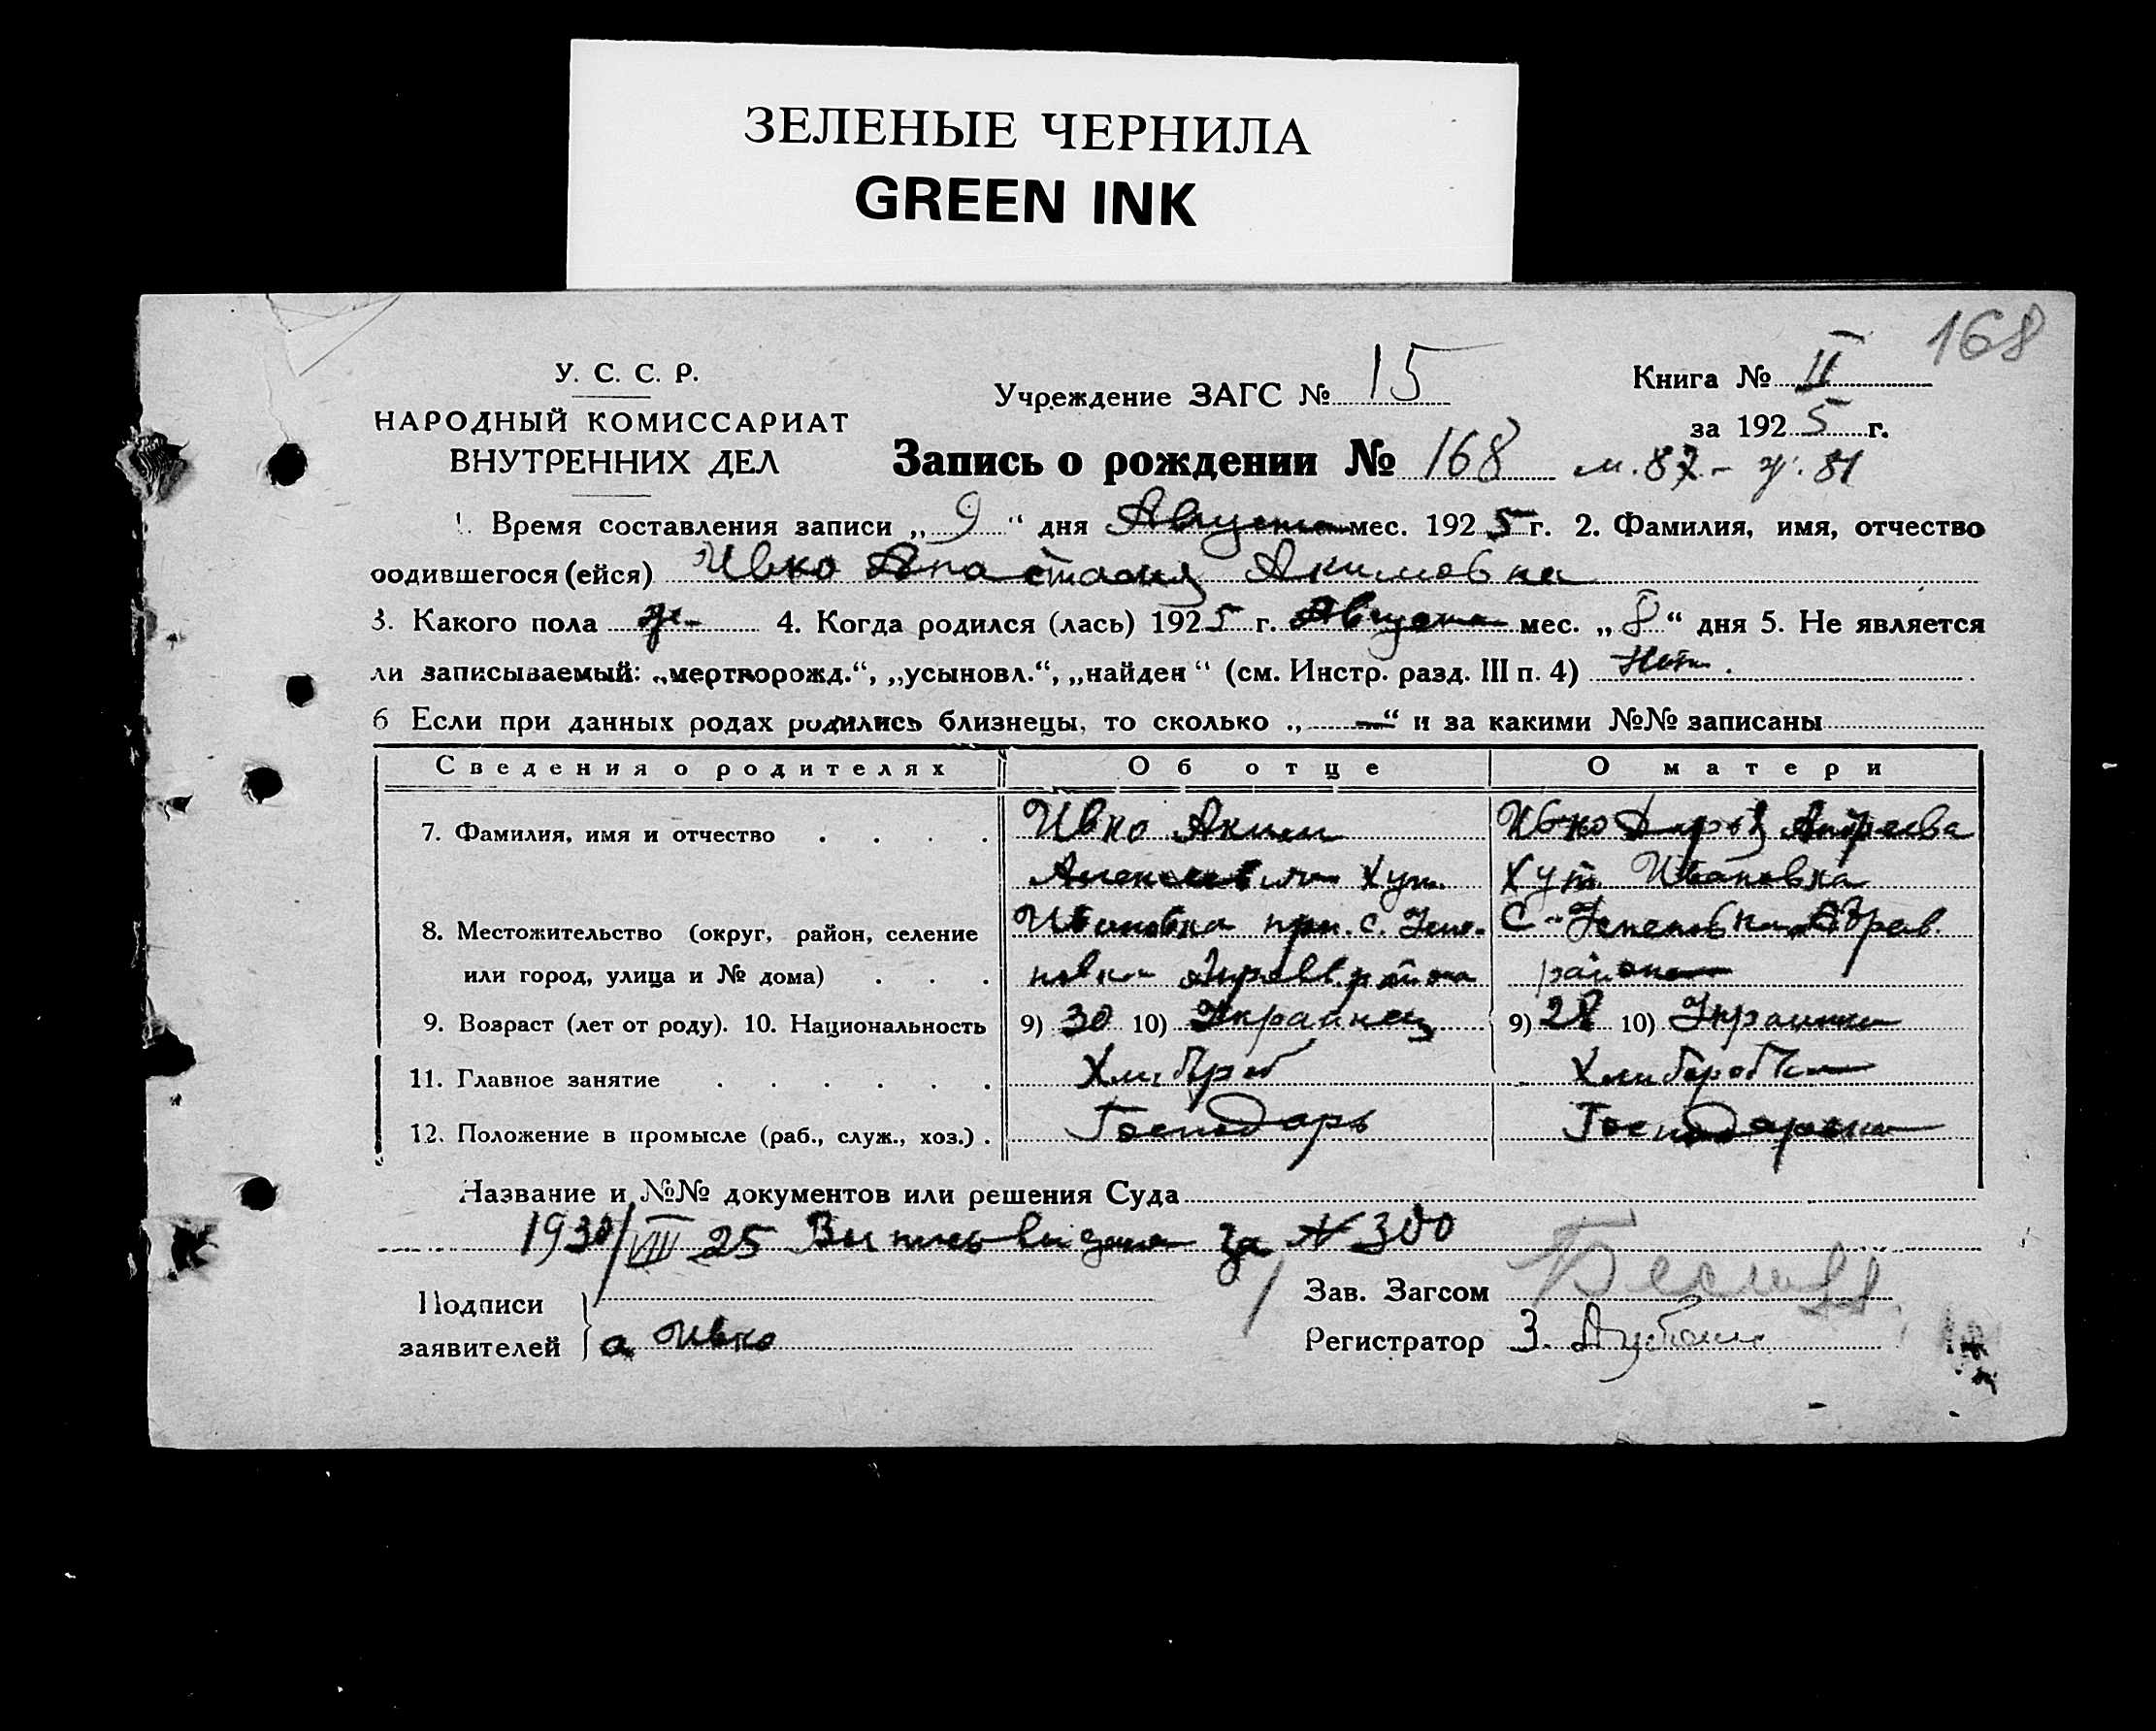 ЗЕЛЕНЫЕ ЧЕРНИЛА
GREEN INK
168
У. С. С. Р.
НАРОДНЫЙ КОМИССАРИАТ
ВНУТРЕННИХ ДЕЛ
Учреждение ЗАГС № 15
Книга № II
за 1925 г.
Запись о рождении № 168 м. 87 - ж. 81
1. Время составления записи „ 9 “ дня Августа мес. 1925 г. 2. Фамилия, имя, отчество
родившегося (ейся) Ивко Анастасия Акимовна
3. Какого пола ж- 4. Когда родился (лась) 1925 г. Августа мес. „ 8 “ дня 5. Не является
ли записываемый: „мертворожд.“, „усыновл.“, „найден“ (см. Инстр. разд. III п. 4) Нет.
6 Если при данных родах родились близнецы, то сколько „ — “ и за какими №№ записаны
Сведения о родителях Об отце О матери
7. Фамилия, имя и отчество Ивко Аким Ивко Дарья
Хут. Хут. Ивановка
8. Местожительство (округ, район, селение Ивановка при. с. С.
или город, улица и № дома) района района
9. Возраст (лет от роду). 10. Национальность 9) 30 10) Украинец 9) 28 10) Украинка
11. Главное занятие Хлибороб Хлиборобка
12. Положение в промысле (раб., служ., хоз.) Господарь Господарка
Название и №№ документов или решения Суда
1930/VIII 25 Выпись видана за № 300
Подписи
заявителей а Ивко
Зав. Загсом
Регистратор З.